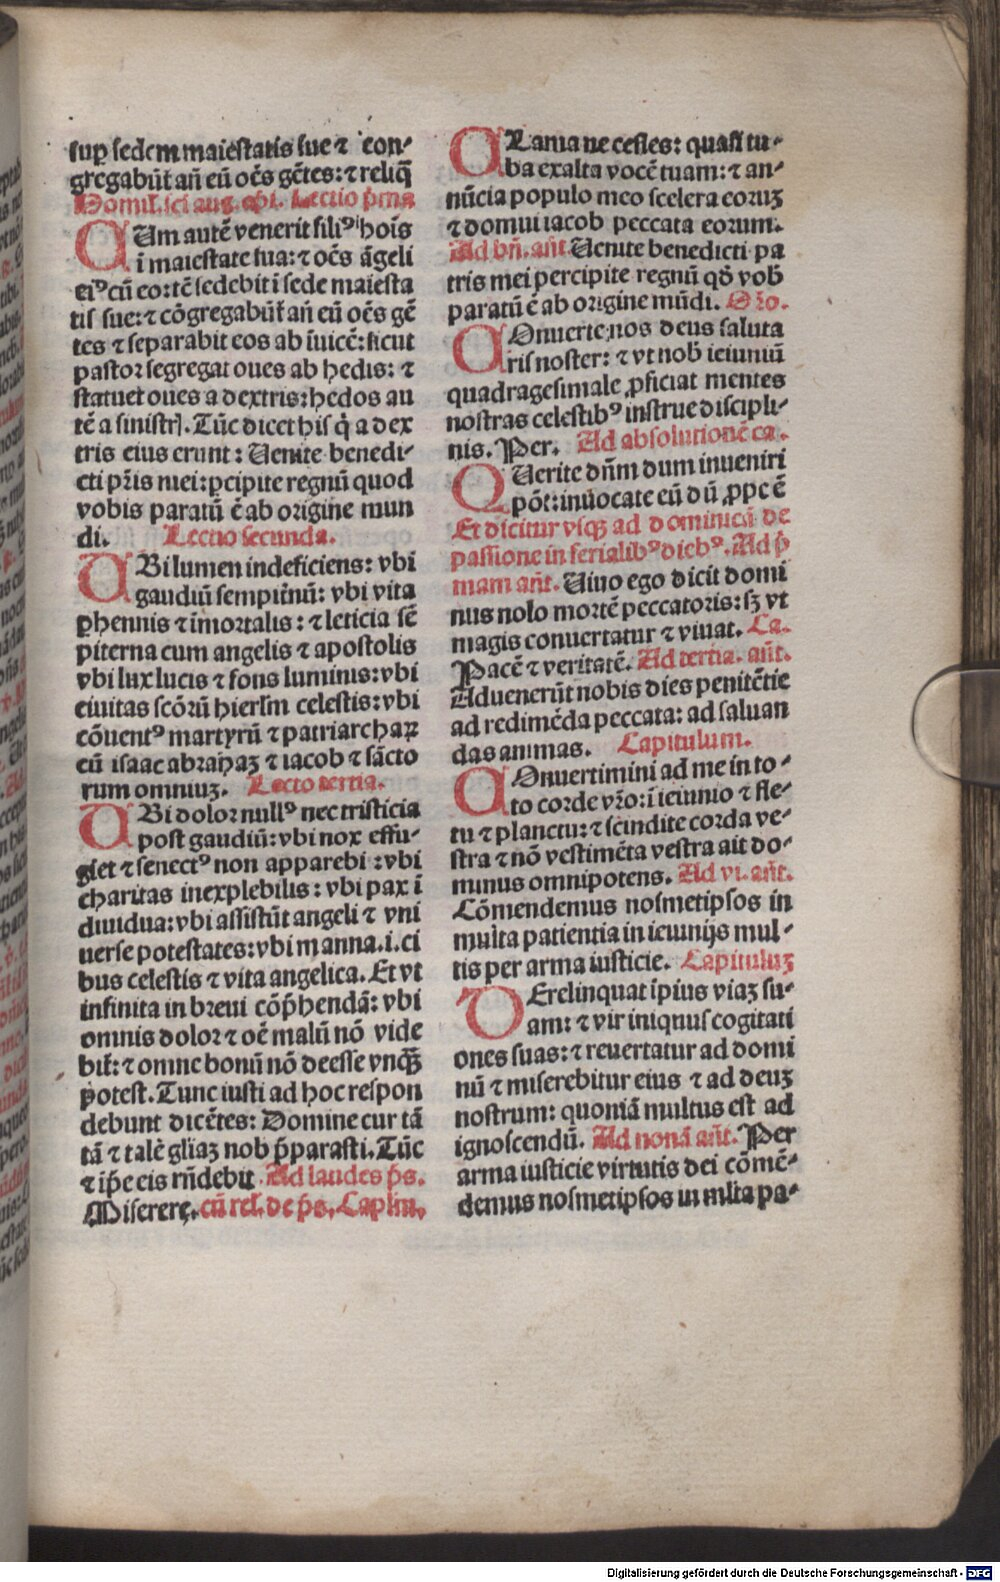 sup sedem maiestatis sue ⁊ con-
gregabūt̄ an̄ eū oēs gētes: ⁊ reliq̄
Domil. sci aug. epi. Lectio p̄ma
CUm autē venerit fili⁹ hoīs
ī maiestate sua: ⁊ oēs āgeli
ei⁹ cū eo: tē sedebit ī sede maiesta
tis sue: ⁊ cōgregabūt̄ an̄ eū oēs gē
tes ⁊ separabit eos ab īuicē: sicut
pastor segregat oues ab hedis: ⁊
statuet oues a dextris: hedos au
tē a sinistrꝭ. Tūc dicet his q̇ a dex
tris eius erunt: Uenite benedi-
cti pr̄is mei: ꝑcipite regnū quod
vobis paratū ē ab origine mun
di. Lectio secunda.
UBi lumen indeficiens: vbi
gaudiū sempit̄nū: vbi vita
ꝑhennis ⁊ īmortalis: ⁊ leticia sē
piterna cum angelis ⁊ apostolis
vbi lux lucis ⁊ fons luminis: vbi
ciuitas scōrū hierlm celestis: vbi
cōuent⁹ martyrū ⁊ patriarcharꝝ
cū isaac abrahaꝫ ⁊ iacob ⁊ sācto
rum omniuꝫ. Lecto tertia.
UBi dolor null⁹ nec tristicia
post gaudiū: vbi nox effu-
giet ⁊ senect⁹ non apparebi: vbi
charitas inexplebilis: vbi pax ī
diuidua: vbi assistūt angeli ⁊ vni
uerse potestates: vbi manna .i. ci
bus celestis ⁊ vita angelica. Et vt
infinita in breui cōp̄hendā: vbi
omnis dolor ⁊ oē malū nō vide
bit̄: ⁊ omne bonū nō deesse vnqꝫ̄
potest. Tunc iusti ad hoc respon
debunt dicētes: Domine cur tā
tā ⁊ talē gliaꝫ nob p̄parasti. Tūc
⁊ ip̄e eis rn̄debit. Ad laudes p̄s.
Miserere. cū rel. de p̄s. Caplm.
CLama ne cesses: quasi tu-
ba exalta vocē tuam: ⁊ an-
nūcia populo meo scelera eoruꝫ
⁊ domui iacob peccata eorum.
Ad bn̄. an̄t. Uenite benedicti pa
tris mei percipite regnū qd̄ vob̄
paratū ē ab origine mūdi. Or̄o.
COnuerte nos deus saluta
ris noster: ⁊ vt nob̄ ieiuniū
quadragesimale ꝓficiat mentes
nostras celestib⁹ instrue discipli-
nis. Per. Ad absolutionē ca.
QUerite dn̄m dum inueniri
pōt: inuocate eū dū ꝓpe ē
Et dicitur vsqꝫ ad dominicā de
passione in ferialib⁹ dieb⁹. Ad p̄
mam an̄t. Uiuo ego dicit domi
nus nolo mortē peccatoris: sꝫ vt
magis conuertatur ⁊ viuat. Ca.
Pacē ⁊ veritatē. Ad tertia. an̄t.
Aduenerūt nobis dies penitētie
ad redimēda peccata: ad saluan
das animas. Capitulum.
COnuertimini ad me in to-
to corde vr̄o: ī ieiunio ⁊ fle-
tu ⁊ planctu: ⁊ scindite corda ve-
stra ⁊ nō vestimēta vestra ait do-
minus omnipotens. Ad vi. an̄t.
Cōmendemus nosmetipsos in
multa patientia in ieiunijs mul-
tis per arma iusticie. Capituluꝫ
DErelinquat ipius viaꝫ su-
am: ⁊ vir iniquus cogitati
ones suas: ⁊ reuertatur ad domi
nū ⁊ miserebitur eius ⁊ ad deuꝫ
nostrum: quoniā multus est ad
ignoscendū. Ad nonā an̄t. Per
arma iusticie virtutis dei cōmē-
demus nosmetipsos in mlta pa-
Digitalisierung gefördert durch die Deutsche Forschungsgemeinschaft - DFG